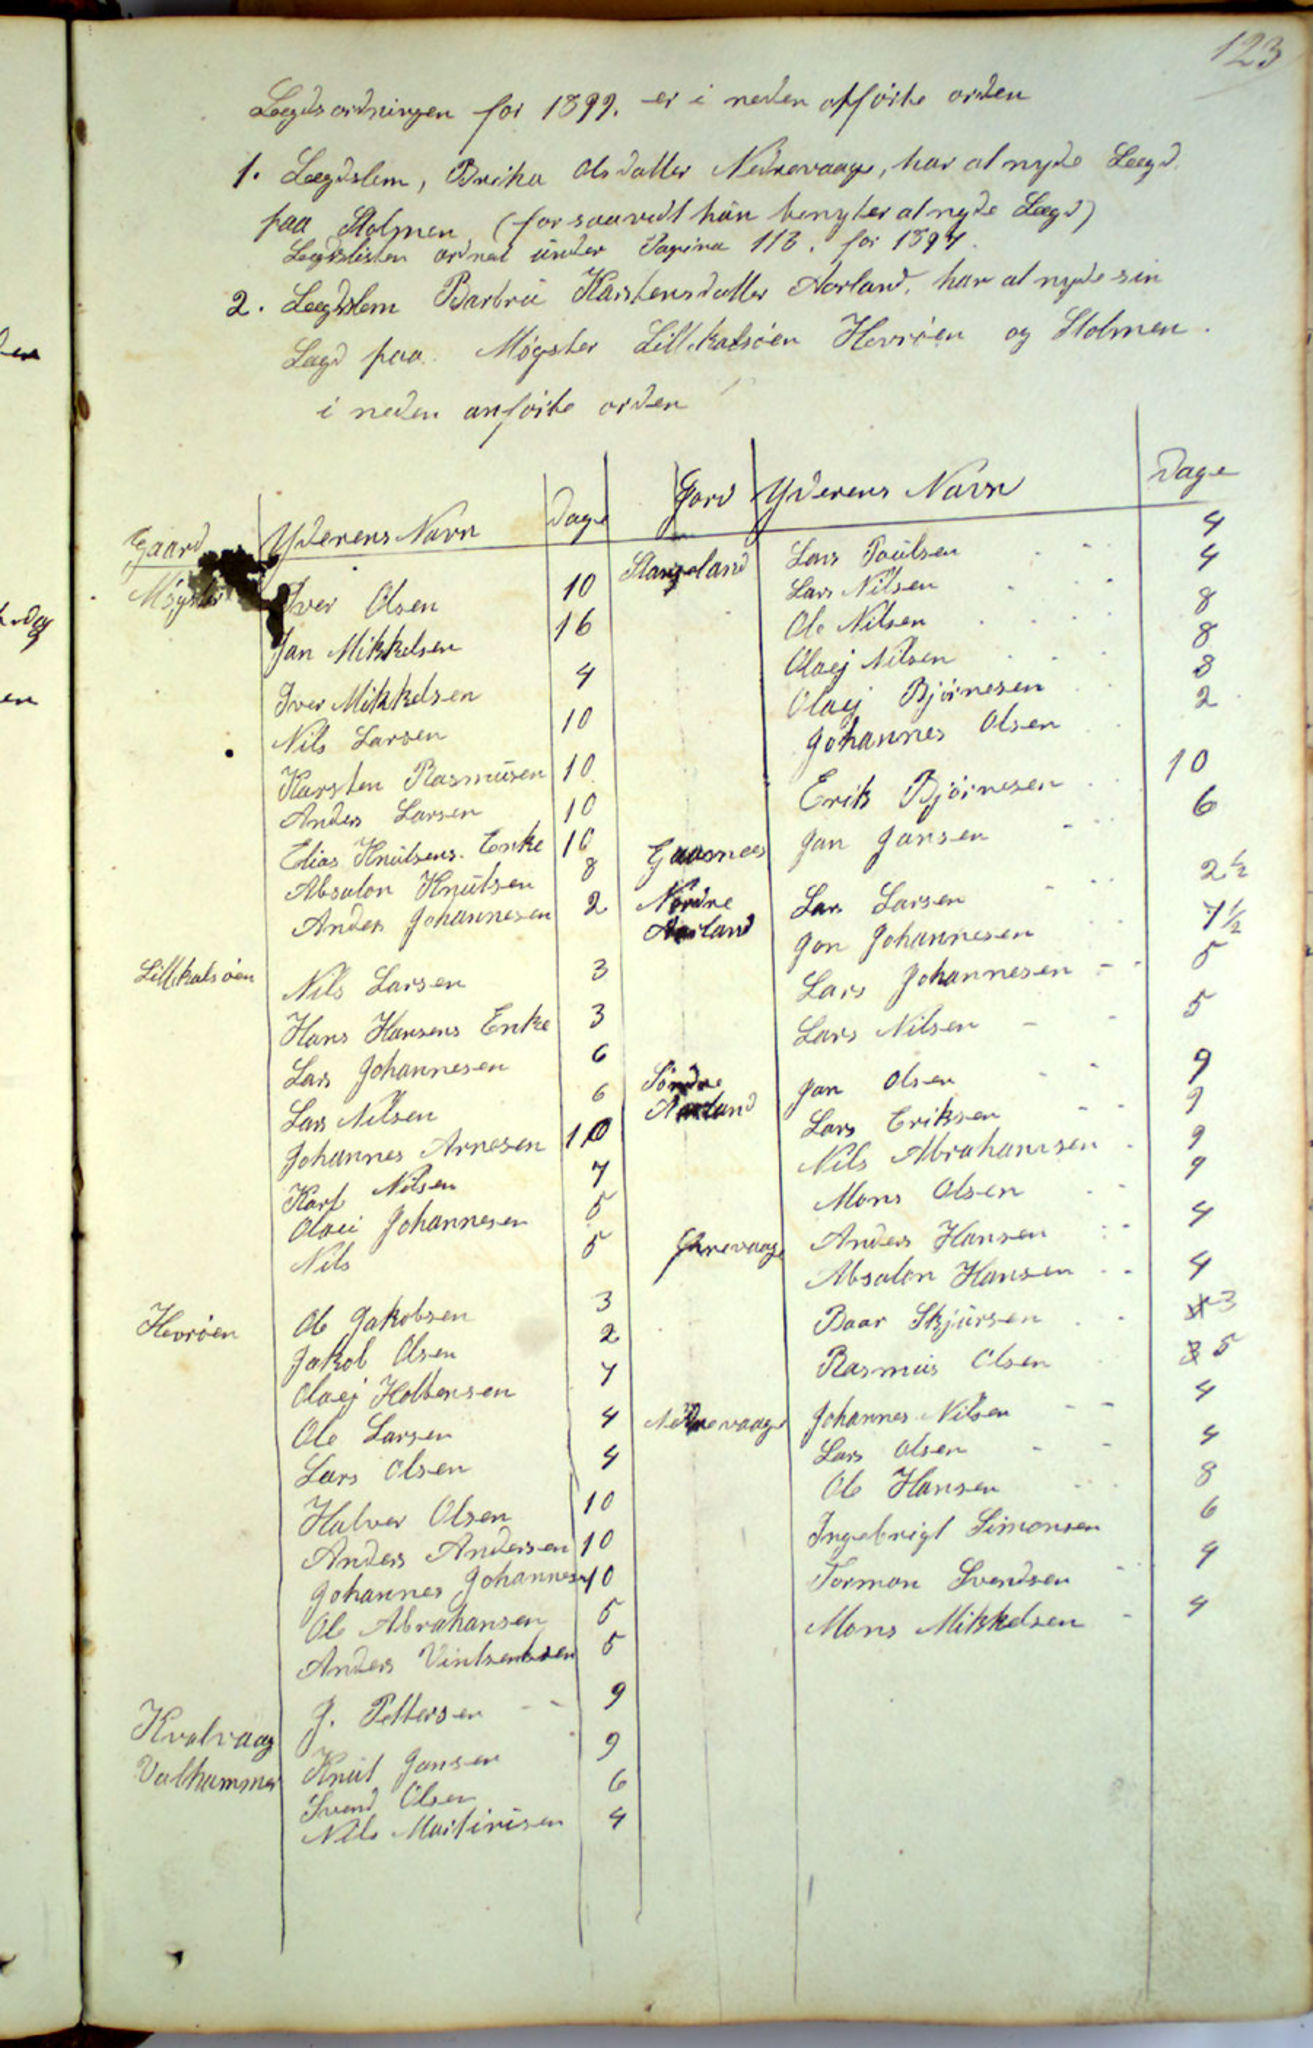 123
Lægdsordningen for 1899. er i neden opførte orden
1. Lægdslem, Brita Olsdatter Nedrevaage, har at nyde Lægd
paa Stolmen (forsaavidt hün benyter at nyde Lægd)
Lægdslisten ordnet ünder Pagina 113. for 1897.
2. Lægdslem Barbrü Karstensdatter Aarland, har at nyde sin
Lægd paa Møgster Lillekalsøen Hevrøen og Stolmen.
i neden anførte orden
Gaard Yderens Navn Dage
Møgster Iver Olsen 10
Jan Mikkelsen 16
Iver Mikkelsen 4
Nils Larsen 10
Karsten Rasmüsen 10
Anders Larsen 10
Elias Knütsens Enke 10
Absalon Knütsen 8
Anders Johannesen 2
Lillekalsøen Nils Larsen 3
Hans Hansens Enke 3
Lars Johannesen 6
Lars Nilsen 6
Johannes Arnesen 10
Karl Nilsen 7
Olaei Johannesen 5
Nils 5
Hevrøen Ole Jakobsen 3
Jakob Olsen 2
Olaej Holtensen 7
Ole Larsen 4
Lars Olsen 4
Halver Olsen 10
Anders Andersen 10
Johannes Johannesen 10
Ole Abrahansen 5
Anders Vintsentsen 5
Kvalvaag J. Pettersen - - 9
Valhammer Knüt Jansen 9
Svend Olsen 6
Nils Martinüsen 4
Gord Yderens Navn Dage
Stangeland Lars Poülsen 4
Lars Nilsen 4
Ole Nilsen 8
Olaej Nilsen 8
Olaej Bjørnesen 8
Johannes Olsen 2
Erik Bjørnesen 10
Gaasnees Jan Jansen 6
Nordre Lars Larsen 2½
Aarland Jon Johannesen 7½
Lars Johannesen - - 5
Lars Nilsen - - 5
Søndre Jan Olsen - - 9
Aarland Lars Eriksen - - 9
Nils Abrahamsen - 9
Mons Olsen - - 9
Øvrevaage Anders Hansen 4
Absalon Hansen - - 4
Baar Skjürsen 3
Rasmüs Olsen 5
Nedrevaage Johannes Nilsen - - 4
Lars Olsen - - 4
Ole Hansen 8
Ingebrigt Simonsen 6
Tormon Svendsen 4
Mons Mikkelsen - 4